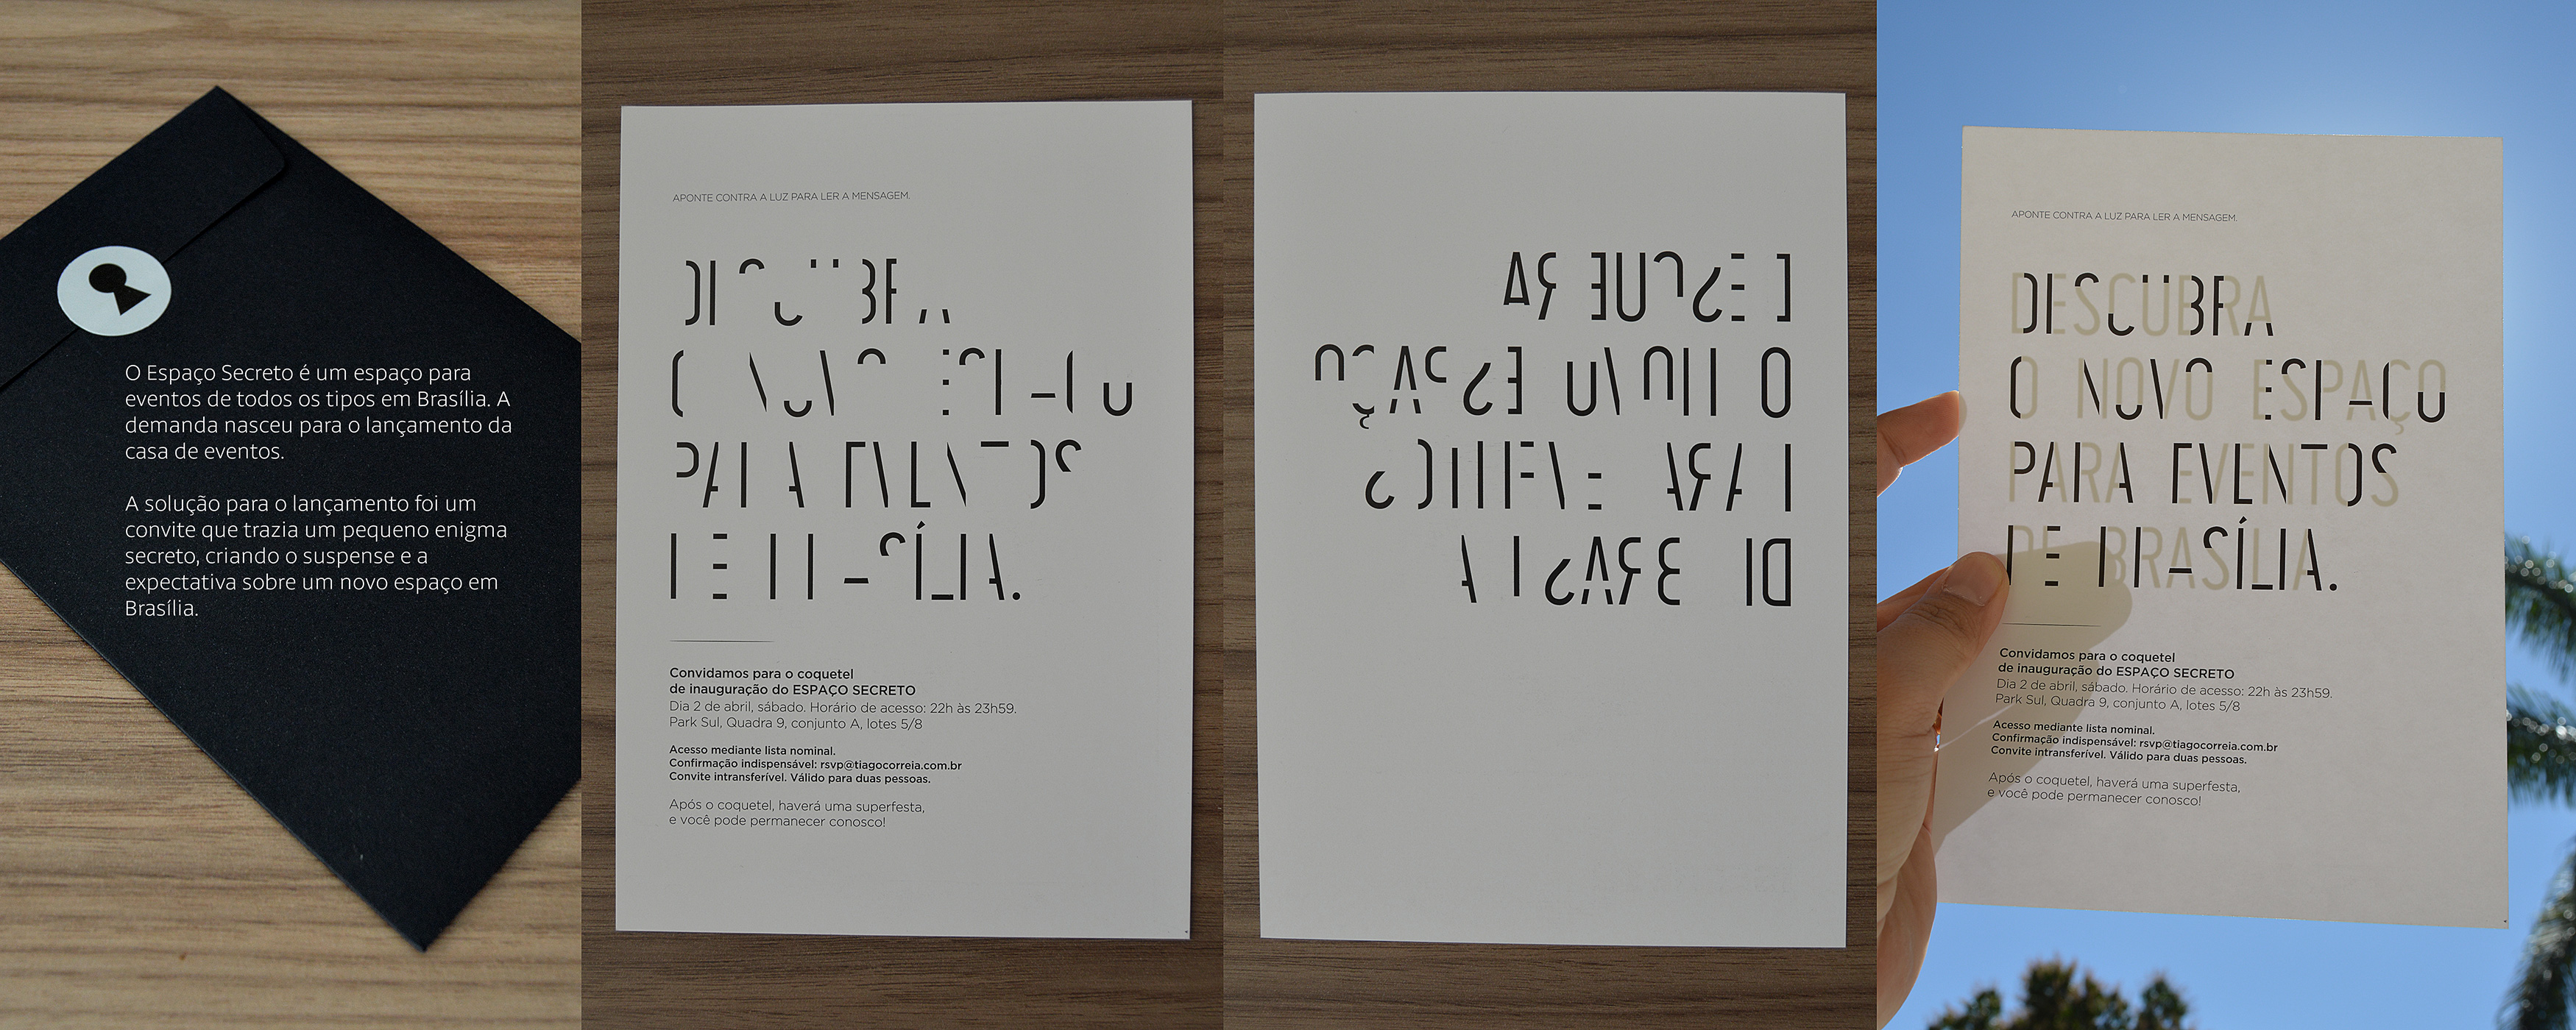 O Espaço Secreto é um espaço para
eventos de todos os tipos em Brasília. A
demanda nasceu para o lançamento da
casa de eventos.
A solução para o lançamento foi um
convite que trazia um pequeno enigma
secreto, criando o suspense e a
expectativa sobre um novo espaço em
Brasília.
APONTE CONTRA A LUZ PARA LER A MENSAGEM.
Convidamos para o coquetel
de inauguração do ESPAÇO SECRETO
Dia 2 de abril, sábado. Horário de acesso: 22h às 23h59.
Park Sul, Quadra 9, conjunto A, lotes 5/8
Acesso mediante lista nominal.
Confirmação indispensável: rsvp@tiagocorreia.com.br
Convite intransferível. Válido para duas pessoas.
Após o coquetel, haverá uma superfesta,
e você pode permanecer conosco!
APONTE CONTRA A LUZ PARA LER A MENSAGEM.
DESCUBRA
O NOVO ESPAÇO
PARA EVENTOS
DE BRASÍLIA.
Convidamos para o coquetel
de inauguração do ESPAÇO SECRETO
Dia 2 de abril, sábado. Horário de acesso: 22h às 23h59.
Park Sul, Quadra 9, conjunto A, lotes 5/8
Acesso mediante lista nominal.
Confirmação indispensável: rsvp@tiagocorreia.com.br
Convite intransferível. Válido para duas pessoas.
Após o coquetel, haverá uma superfesta,
e você pode permanecer conosco!